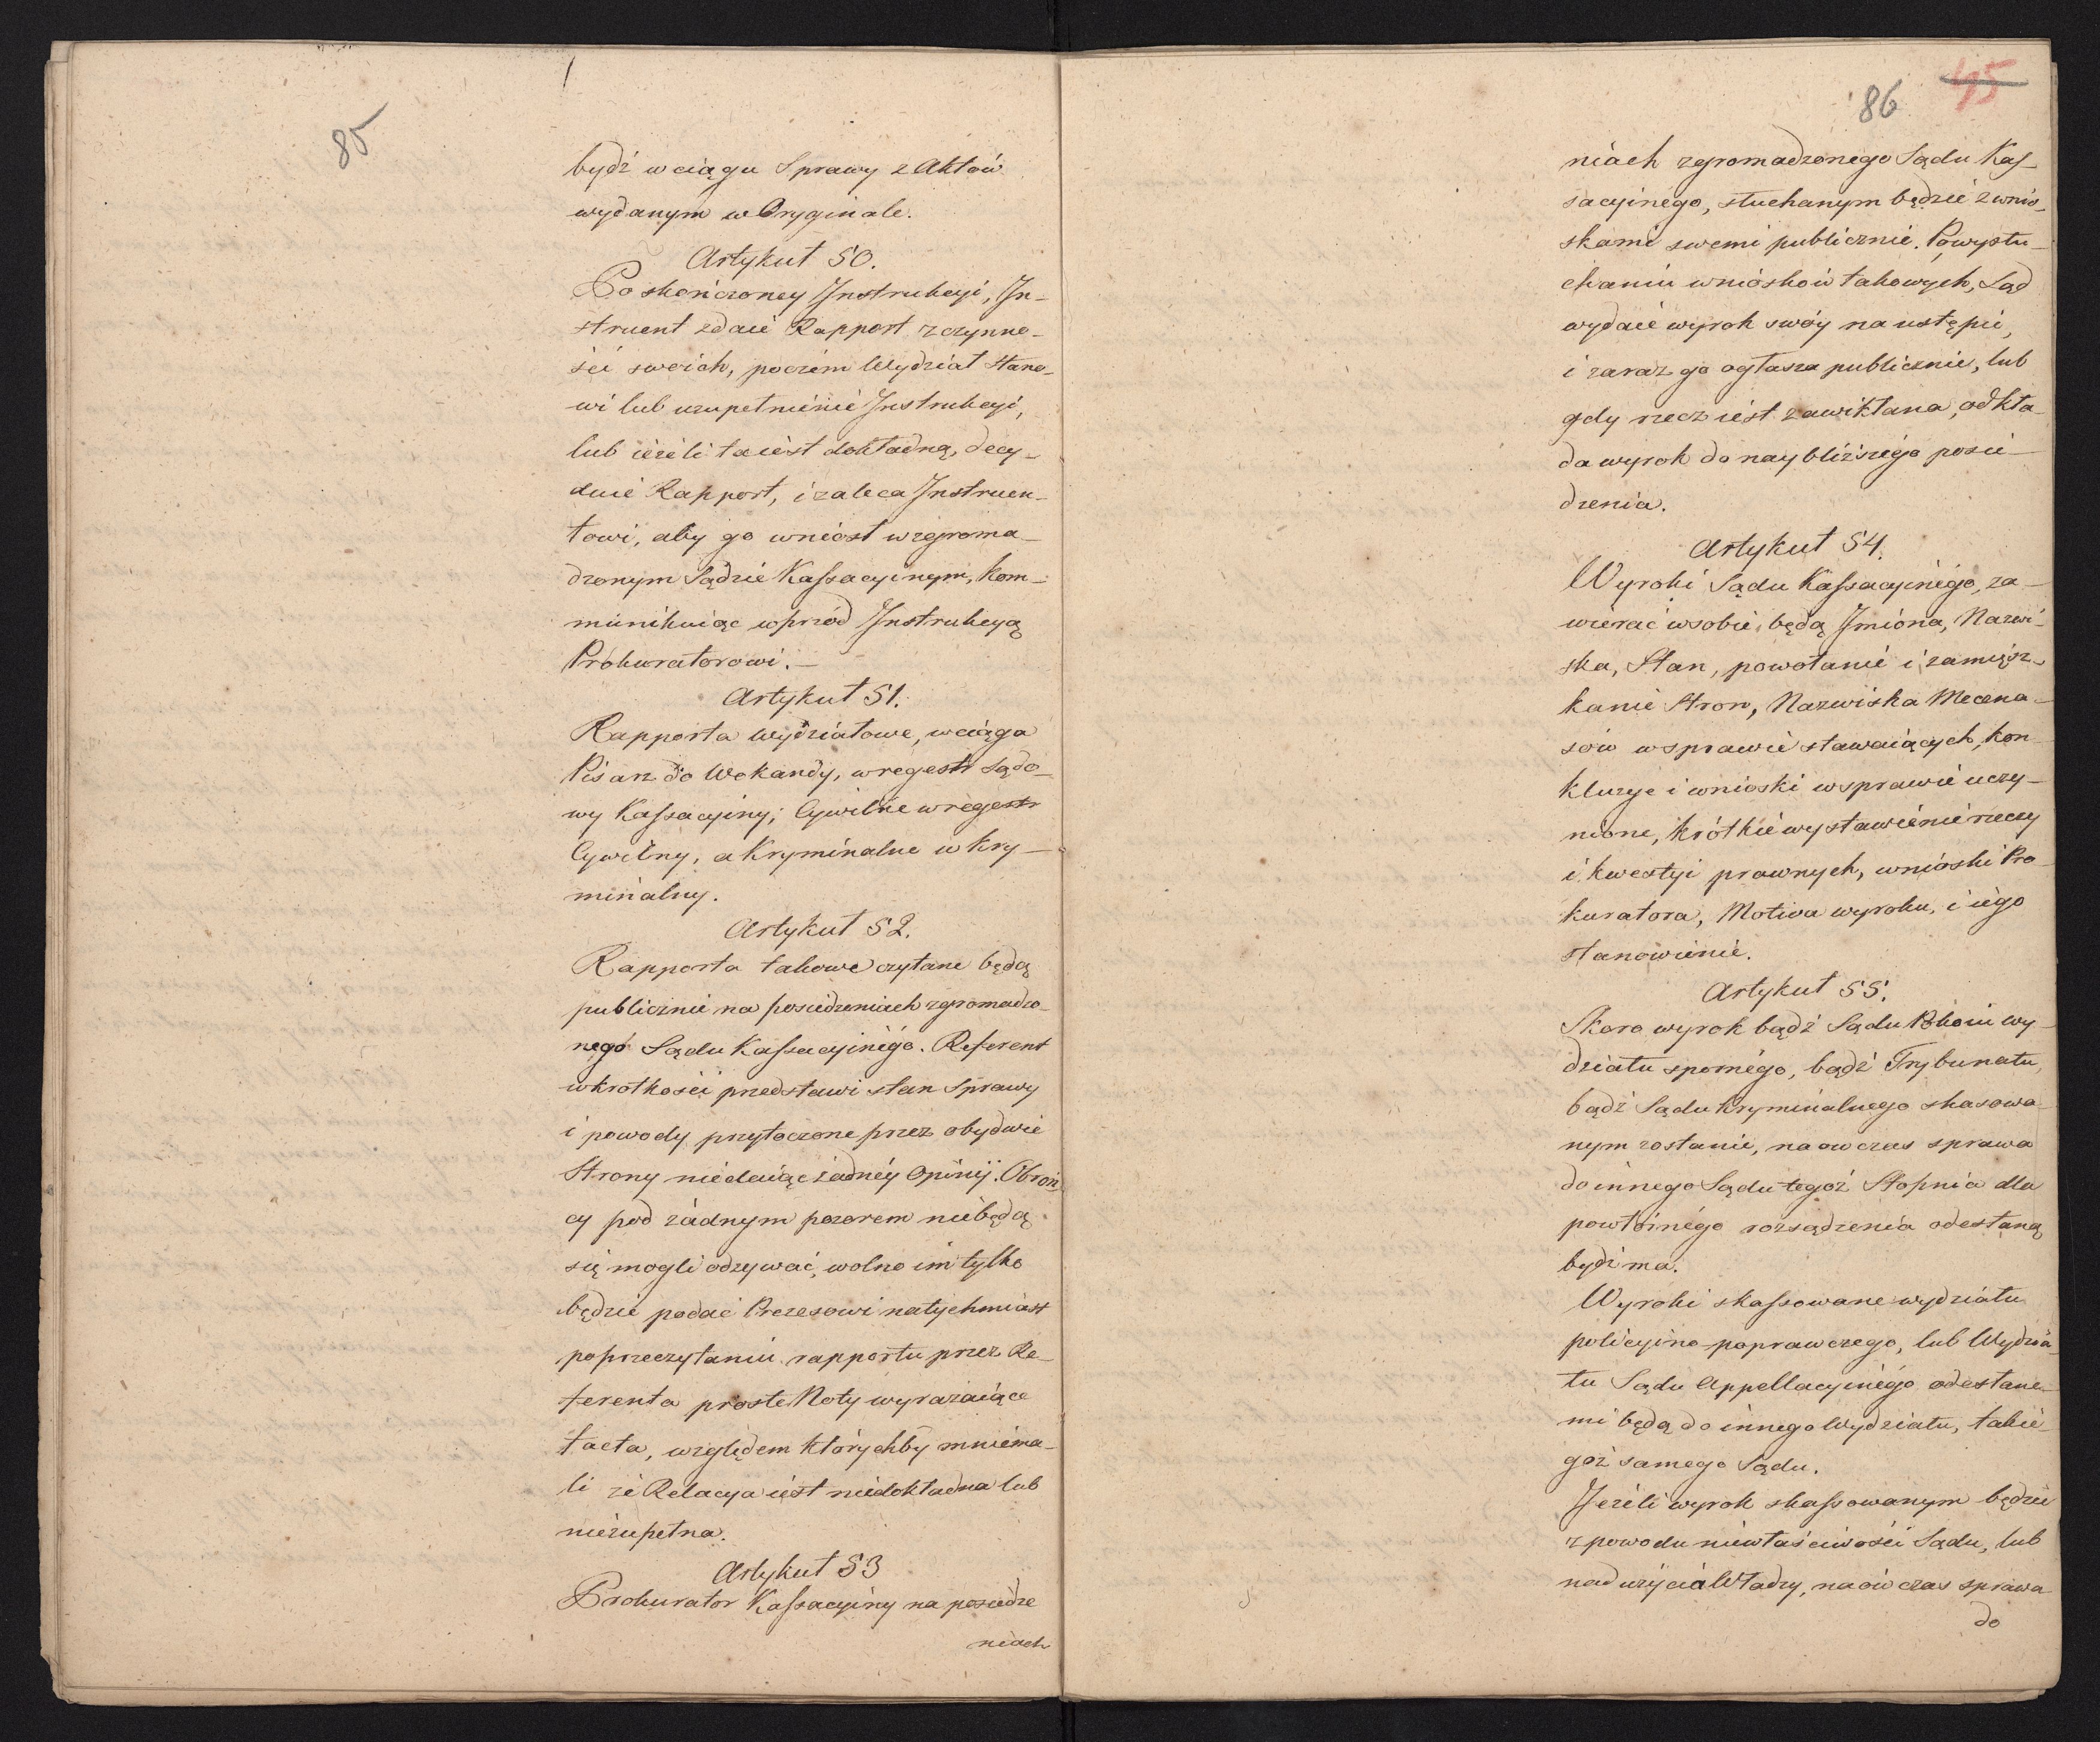 85
bydź w ciągu Sprawy z Aktów
wydanym w Oryginale.
Artykuł 50.
Po skończoney Instrukcyi, In-
struent zdaie Rapport z czynno-
ści swoich, poczém Wydział stano-
wi lub uzupełnienie Instrukcyi,
lub ieżeli ta iest dokładną, decy-
duie Rapport, i zaleca Instruen-
towi, aby go wniosł w zgroma-
dzonym Sądzie Kassacyinym, kom-
munikuiąc wprzód Instrukcyą
Prokuratorowi. —
Artykuł 51.
Rapporta Wydziałowe, wciąga
Pisarz do Wokandy, w regestr Sądo-
wy Kassacyiny; Cywilne w regestr
Cywilny, a Kryminalne w Kry-
minalny.
Artykuł 52.
Rapporta takowe czytane będą
publicznie na posiedzeniach zgromadzo-
nego Sądu Kassacyinego. Referent
w krotkości przedstawi stan Sprawy
i powody przytoczone przez obydwie
Strony niedaiąc żadnéy Opinij. Obroń-
cy pod żadnym pozorem niebędą
się mogli odzywać, wolno im tylko
będzie podać Prezesowi natychmiast
po przeczytaniu rapportu przez Re-
ferenta proste Noty wyrażaiące
facta, względem którychby mniema-
li że Relacya iest niedokładna lub
niezupełna.
Artykuł 53
Prokurator Kassacyiny na posiedze
niach
86 45
niach zgromadzonego Sądu Kas-
sacyinego, słuchanym będzie z wnio-
skami swemi publicznie. Po wysłu-
chaniu wniosków takowych, Sąd
wydaie wyrok swóy na ustępie,
i zaraz go ogłasza publicznie, lub
gdy rzecz iest zawikłana, odkła-
da wyrok do naybliższego posie-
dzenia.
Artykuł 54.
Wyroki Sądu Kassacyinego, za-
wierać w sobie będą Imiona, Nazwi-
ska, Stan, powołanie i zamięsz-
kanie Stron, Nazwiska Mecena-
sów w sprawie stawaiących, kon-
kluzye i wnioski w sprawie uczy-
nione, krótkie wystawienie rzeczy
i kwestyi prawnych, wnioski Pro-
kuratora, Motiva wyroku, i iégo
stanowienie.
Artykuł 55.
Skoro wyrok bądź Sądu Pokoiu wy-
działu spornégo, bądź Trybunału,
bądź Sądu Kryminalnego skasowa-
nym zostanie, naowczas sprawa
do innego Sądu tegoż Stopnia dla
powtórnégo rozsądzenia odesłaną
bydź ma.
Wyroki skassowane wydziału
policyino-poprawczego, lub Wydzia-
łu Sądu Appellacyinégo odesłane-
mi będą do innego Wydziału, takie-
goż samego Sądu.
Ieżeli wyrok skassowanym będzie
z powodu niewłaściwości Sądu, lub
nadużycia Władzy, naówczas sprawa
do